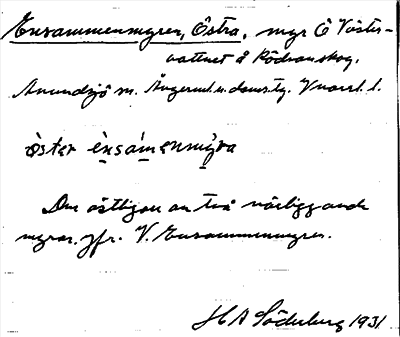 Ensammenmyren, Östra, myr Ö Väster-
vattnet å Rödvanskog.
Anundsjö sn. Ångerml. n. domsg. Vnorrl. l.
òster ènsámenmýra
Den östligare av två närliggande
myrar, jfr. V. Ensammenmyren.
H A Söderberg 1931